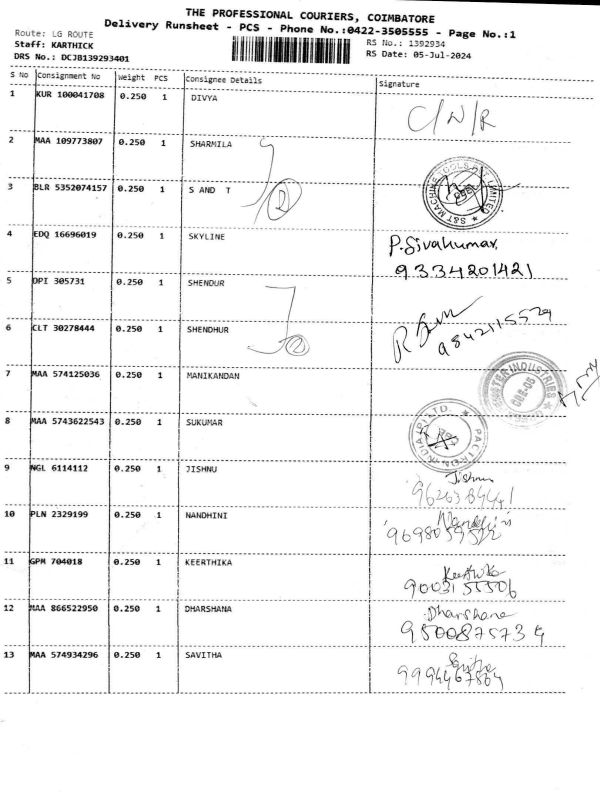 THE PROFESSIONAL COURIERS, COIMBATORE
Delivery Runsheet - PCS - Phone No.:0422-3505555 - Page No.:1
Route: LG ROUTE
Staff: KARTHICK
DRS No.: DCJB139293401
RS No.: 1392934
RS Date: 05-Jul-2024
S No Consignment No Weight PCS Consignee Details Signature
1 KUR 100041708 0.250 1 DIVYA C/N/R
2 MAA 109773807 0.250 1 SHARMILA
3 BLR 5352074157 0.250 1 S AND T
4 EDQ 16696019 0.250 1 SKYLINE P.Sivakumar
9334201421
5 DPI 305731 0.250 1 SHENDUR
6 CLT 30278444 0.250 1 SHENDHUR 9842115529
7 MAA 574125036 0.250 1 MANIKANDAN
8 MAA 5743622543 0.250 1 SUKUMAR
9 NGL 6114112 0.250 1 JISHNU Jishnu
10 PLN 2329199 0.250 1 NANDHINI Nandhini
11 GPM 704018 0.250 1 KEERTHIKA Keerthika
9003155506
12 MAA 866522950 0.250 1 DHARSHANA Dharshana
13 MAA 574934296 0.250 1 SAVITHA Savitha